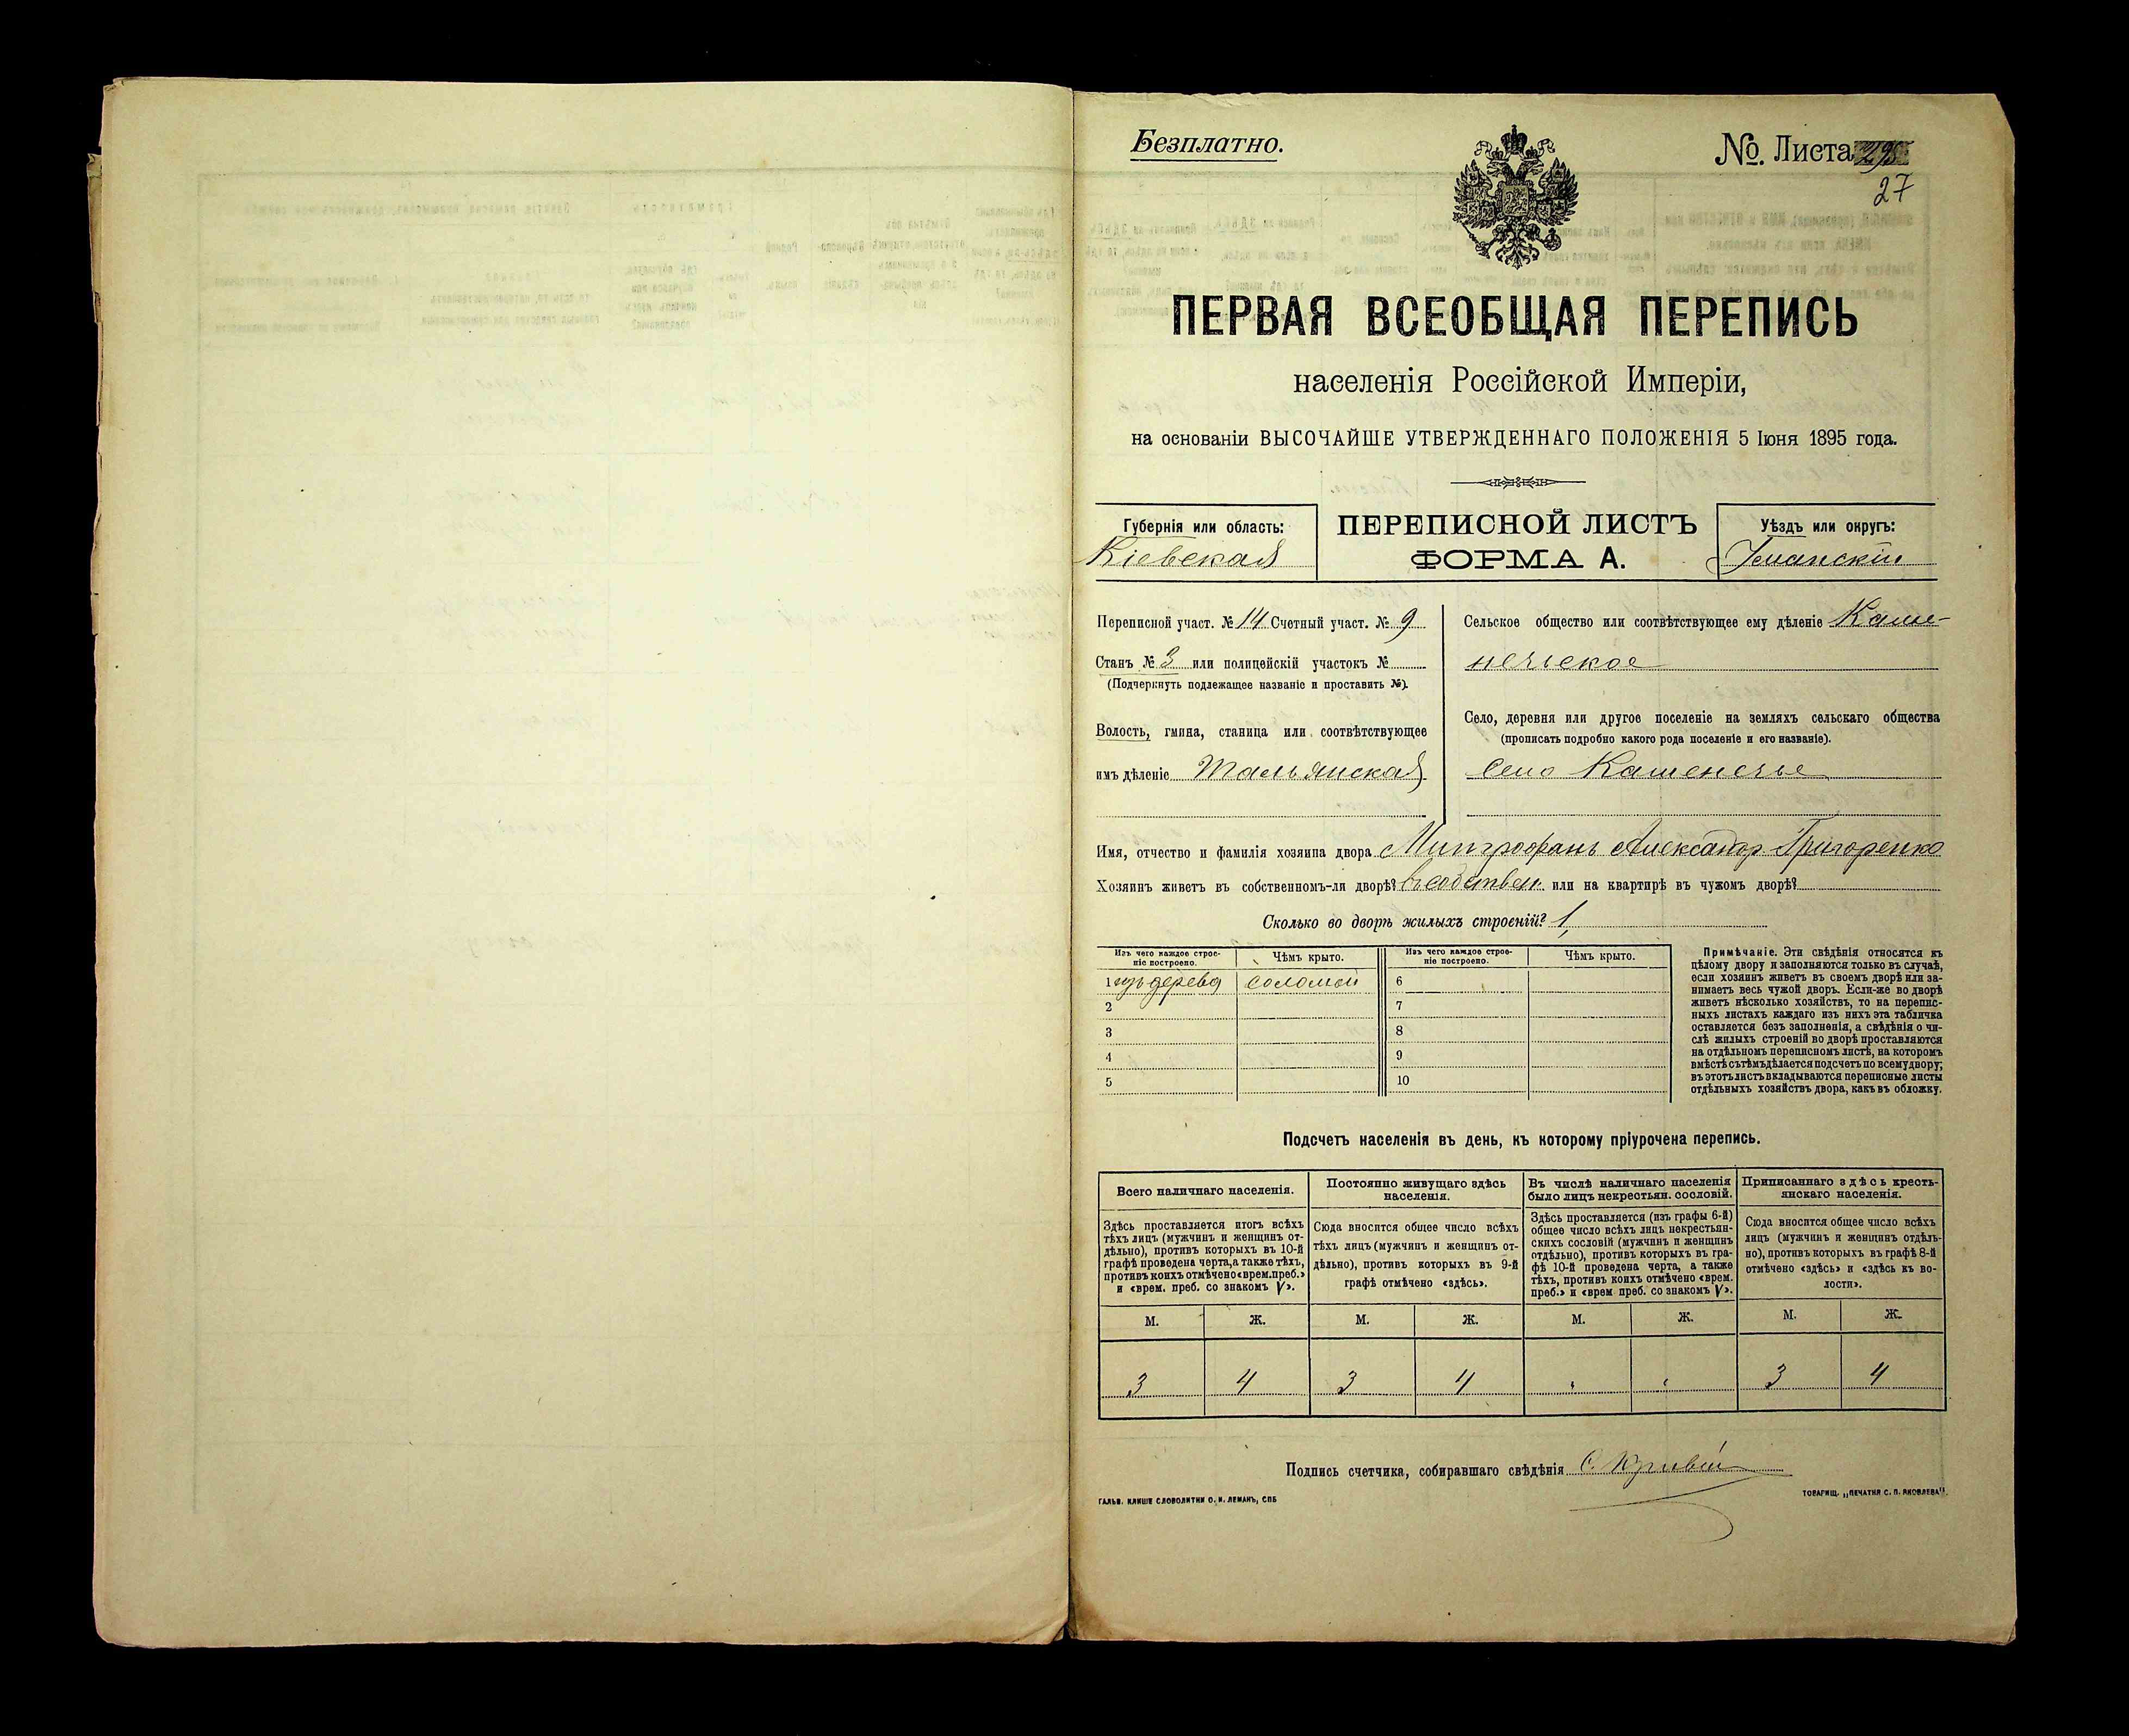 Безплатно.
№. Листа
27
ПЕРВАЯ ВСЕОБЩАЯ ПЕРЕПИСЬ
населенія Россійской Имперіи,
на основаніи ВЫСОЧАЙШЕ УТВЕРЖДЕННАГО ПОЛОЖЕНІЯ 5 Іюня 1895 года.
Губернія или область:
Кіевская
ПЕРЕПИСНОЙ ЛИСТЪ
ФОРМА А.
Уѣздъ или округъ:
Уманскій
Переписной участ. № 14 Счетный участ. № 9
Станъ № 3 или полицейскій участокъ №
(Подчеркнуть подлежащее названіе и проставить №).
Волость, гмина, станица или соотвѣтствующее
имъ дѣленіе Тальянская
Сельское общество или соотвѣтствующее ему дѣленіе Каме-
нечьское
Село, деревня или другое поселеніе на земляхъ сельскаго общества
(прописать подробно какого рода поселеніе и его названіе).
Село Каменечье
Имя, отчество и фамилія хозяина двора Митрофанъ Александр. Григоренко
Хозяинъ живетъ въ собственномъ-ли дворѣ? въ собствен. или на квартирѣ въ чужомъ дворѣ?
Сколько во дворѣ жилыхъ строеній? 1,
Изъ чего каждое строе-
ніе построено.
Чѣмъ крыто.
Изъ чего каждое строе-
ніе построено.
Чѣмъ крыто.
1 изъ дерева соломой 6
2 7
3 8
4 9
5 10
Примѣчаніе. Эти свѣдѣнія относятся къ
цѣлому двору и заполняются только въ случаѣ,
если хозяинъ живетъ въ своемъ дворѣ или за-
нимаетъ весь чужой дворъ. Если-же во дворѣ
живетъ нѣсколько хозяйствъ, то на перепис-
ныхъ листахъ каждаго изъ нихъ эта табличка
оставляется безъ заполненія, а свѣдѣнія о чи-
слѣ жилыхъ строеній во дворѣ проставляются
на отдѣльномъ переписномъ листѣ, на которомъ
вмѣстѣ съ тѣмъ дѣлается подсчетъ по всему двору;
въ этотъ листъ вкладываются переписные листы
отдѣльныхъ хозяйствъ двора, какъ въ обложку.
Подсчетъ населенія въ день, къ которому пріурочена перепись.
Всего наличнаго населенія.
Здѣсь проставляется итогъ всѣхъ
тѣхъ лицъ (мужчинъ и женщинъ от-
дѣльно), противъ которыхъ въ 10-й
графѣ проведена черта, а также тѣхъ,
противъ коихъ отмѣчено «врем. преб.»
и «врем. преб. со знакомъ V».
Постоянно живущаго здѣсь
населенія.
Сюда вносится общее число всѣхъ
тѣхъ лицъ (мужчинъ и женщинъ от-
дѣльно), противъ которыхъ въ 9-й
графѣ отмѣчено «здѣсь».
Въ числѣ наличнаго населенія
было лицъ некрестьян. сословій.
Здѣсь проставляется (изъ графы 6-й)
общее число всѣхъ лицъ некрестьян-
скихъ сословій (мужчинъ и женщинъ
отдѣльно), противъ которыхъ въ гра-
фѣ 10-й проведена черта, а также
тѣхъ, противъ коихъ отмѣчено «врем.
преб.» и «врем преб. со знакомъ V».
Приписаннаго здѣсь кресть-
янскаго населенія.
Сюда вносится общее число всѣхъ
лицъ (мужчинъ и женщинъ отдѣль-
но), противъ которыхъ въ графѣ 8-й
отмѣчено «здѣсь» и «здѣсь къ во-
лости».
М. Ж. М. Ж. М. Ж. М. Ж.
3 4 3 4 " " 3 4
Подпись счетчика, собиравшаго свѣдѣнія С. Кривій
ГАЛЬВ. КЛИШЕ СЛОВОЛИТНИ О. И. ЛЕМАНЪ, СПБ
ТОВАРИЩ. „ПЕЧАТНЯ С. П. ЯКОВЛЕВА".